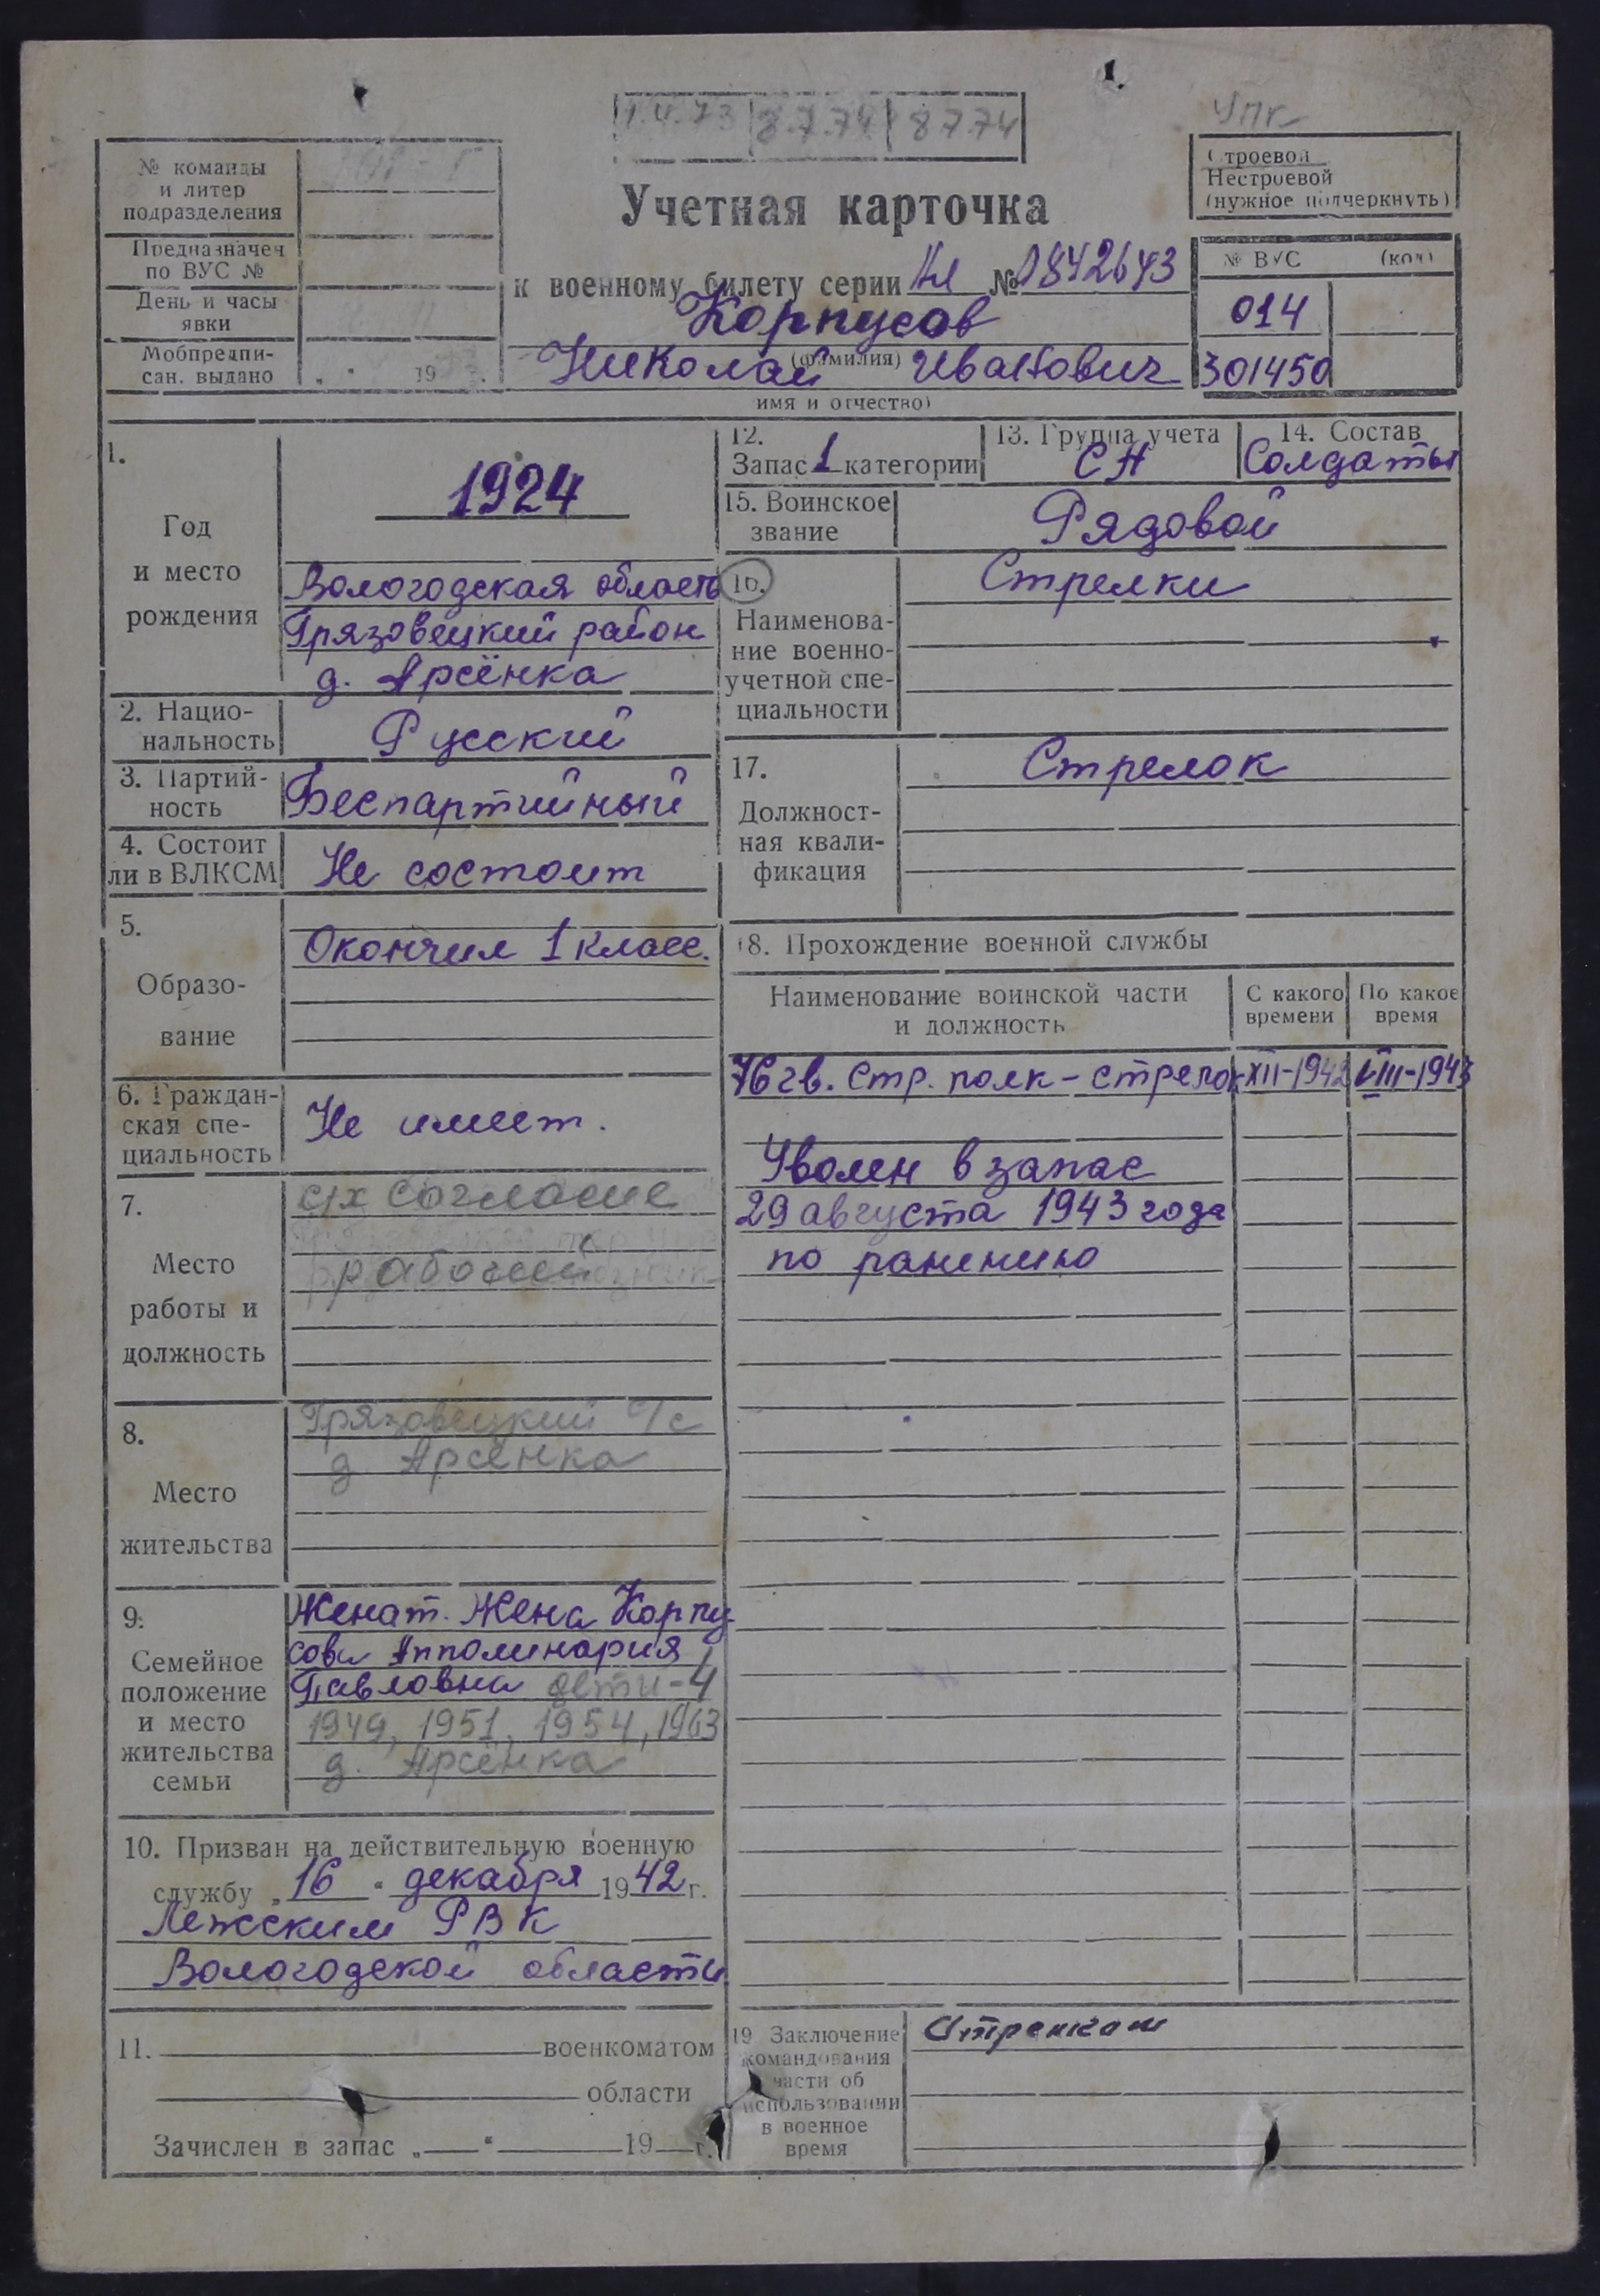 1.IV.73 8.7.74 8 7.74
упк
№ команды
и литер
подразделения
Предназначен
по ВУС №
День и часы
явки
Мобпредпи-
сан. выдано „ " 19 г.
Учетная карточка
к военному билету серии № 1842643
Корпусов
(фамилия)
Николай Иванович
имя и отчество)
Строевой
Нестроевой
(нужное подчеркнуть)
№ ВУС (код)
014
301450
1.
Год
и место
рождения
1924
Вологодская область
Грязовецкий район
д. Арсёнка
2. Нацио-
нальность
Русский
3. Партий-
ность
Беспартийный
4. Состоит
ли в ВЛКСМ
Не состоит
5.
Образо-
вание
Окончил 1 класс.
6. Граждан-
ская спе-
циальность
Не имеет.
7.
Место
работы и
должность
с/х
рабочий
8.
Место
жительства
Грязовецкий с/с
д. Арсёнка
9.
Семейное
положение
и место
жительства
семьи
Женат. Жена Корпу-
сова Апполинария
Павловна дети-4
1949, 1951, 1954, 1963
д. Арсёнка
10. Призван на действительную военную
службу „16" декабря 1942 г.
Лежским РВК
Вологодской области
11. военкоматом
области
Зачислен в запас „ " 19 г.
12.
Запас 1 категории
13. Группа учета
СН
14. Состав
Солдаты
15. Воинское
звание
Рядовой
16.
Наименова-
ние военно-
учетной спе-
циальности
Стрелки
17.
Должност-
ная квали-
фикация
Стрелок
18. Прохождение военной службы
Наименование воинской части
и должность
С какого
времени
По какое
время
76 гв. стр. полк - стрелок XII-1942 VIII-1943
Уволен в запас
29 августа 1943 года
по ранению
19 Заключение
командования
части об
использовании
в военное
время